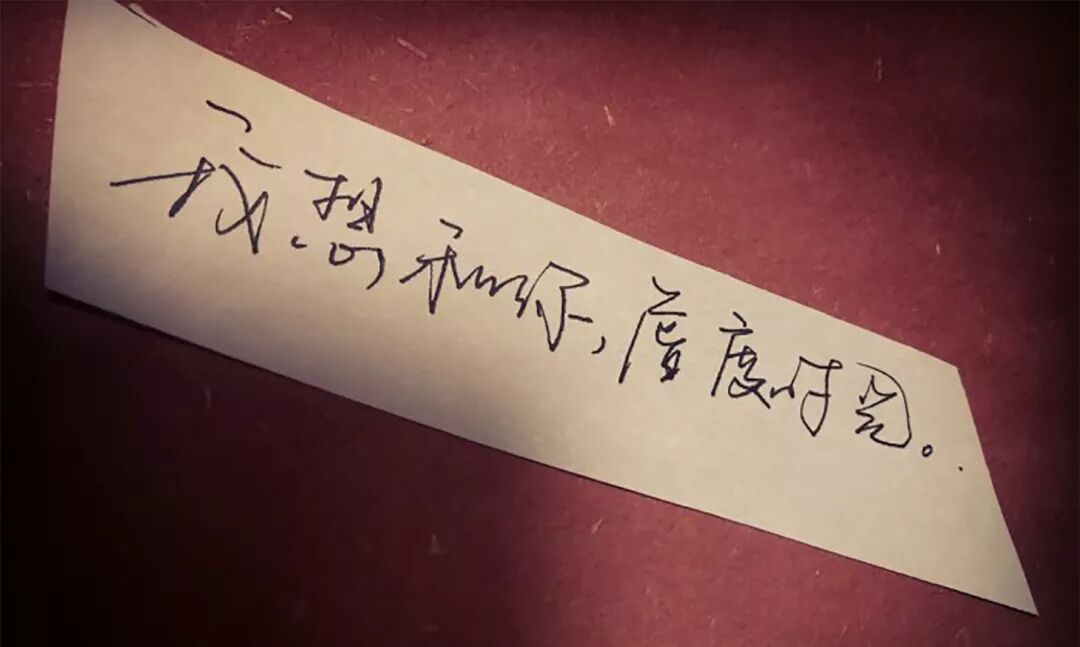 我想和你,虚度时光。